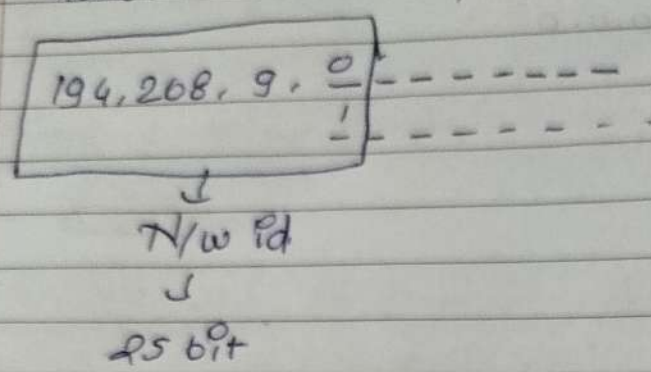 194.208.9. 0 - - - - - - -
1 - - - - - - -
N/w id
25 bit